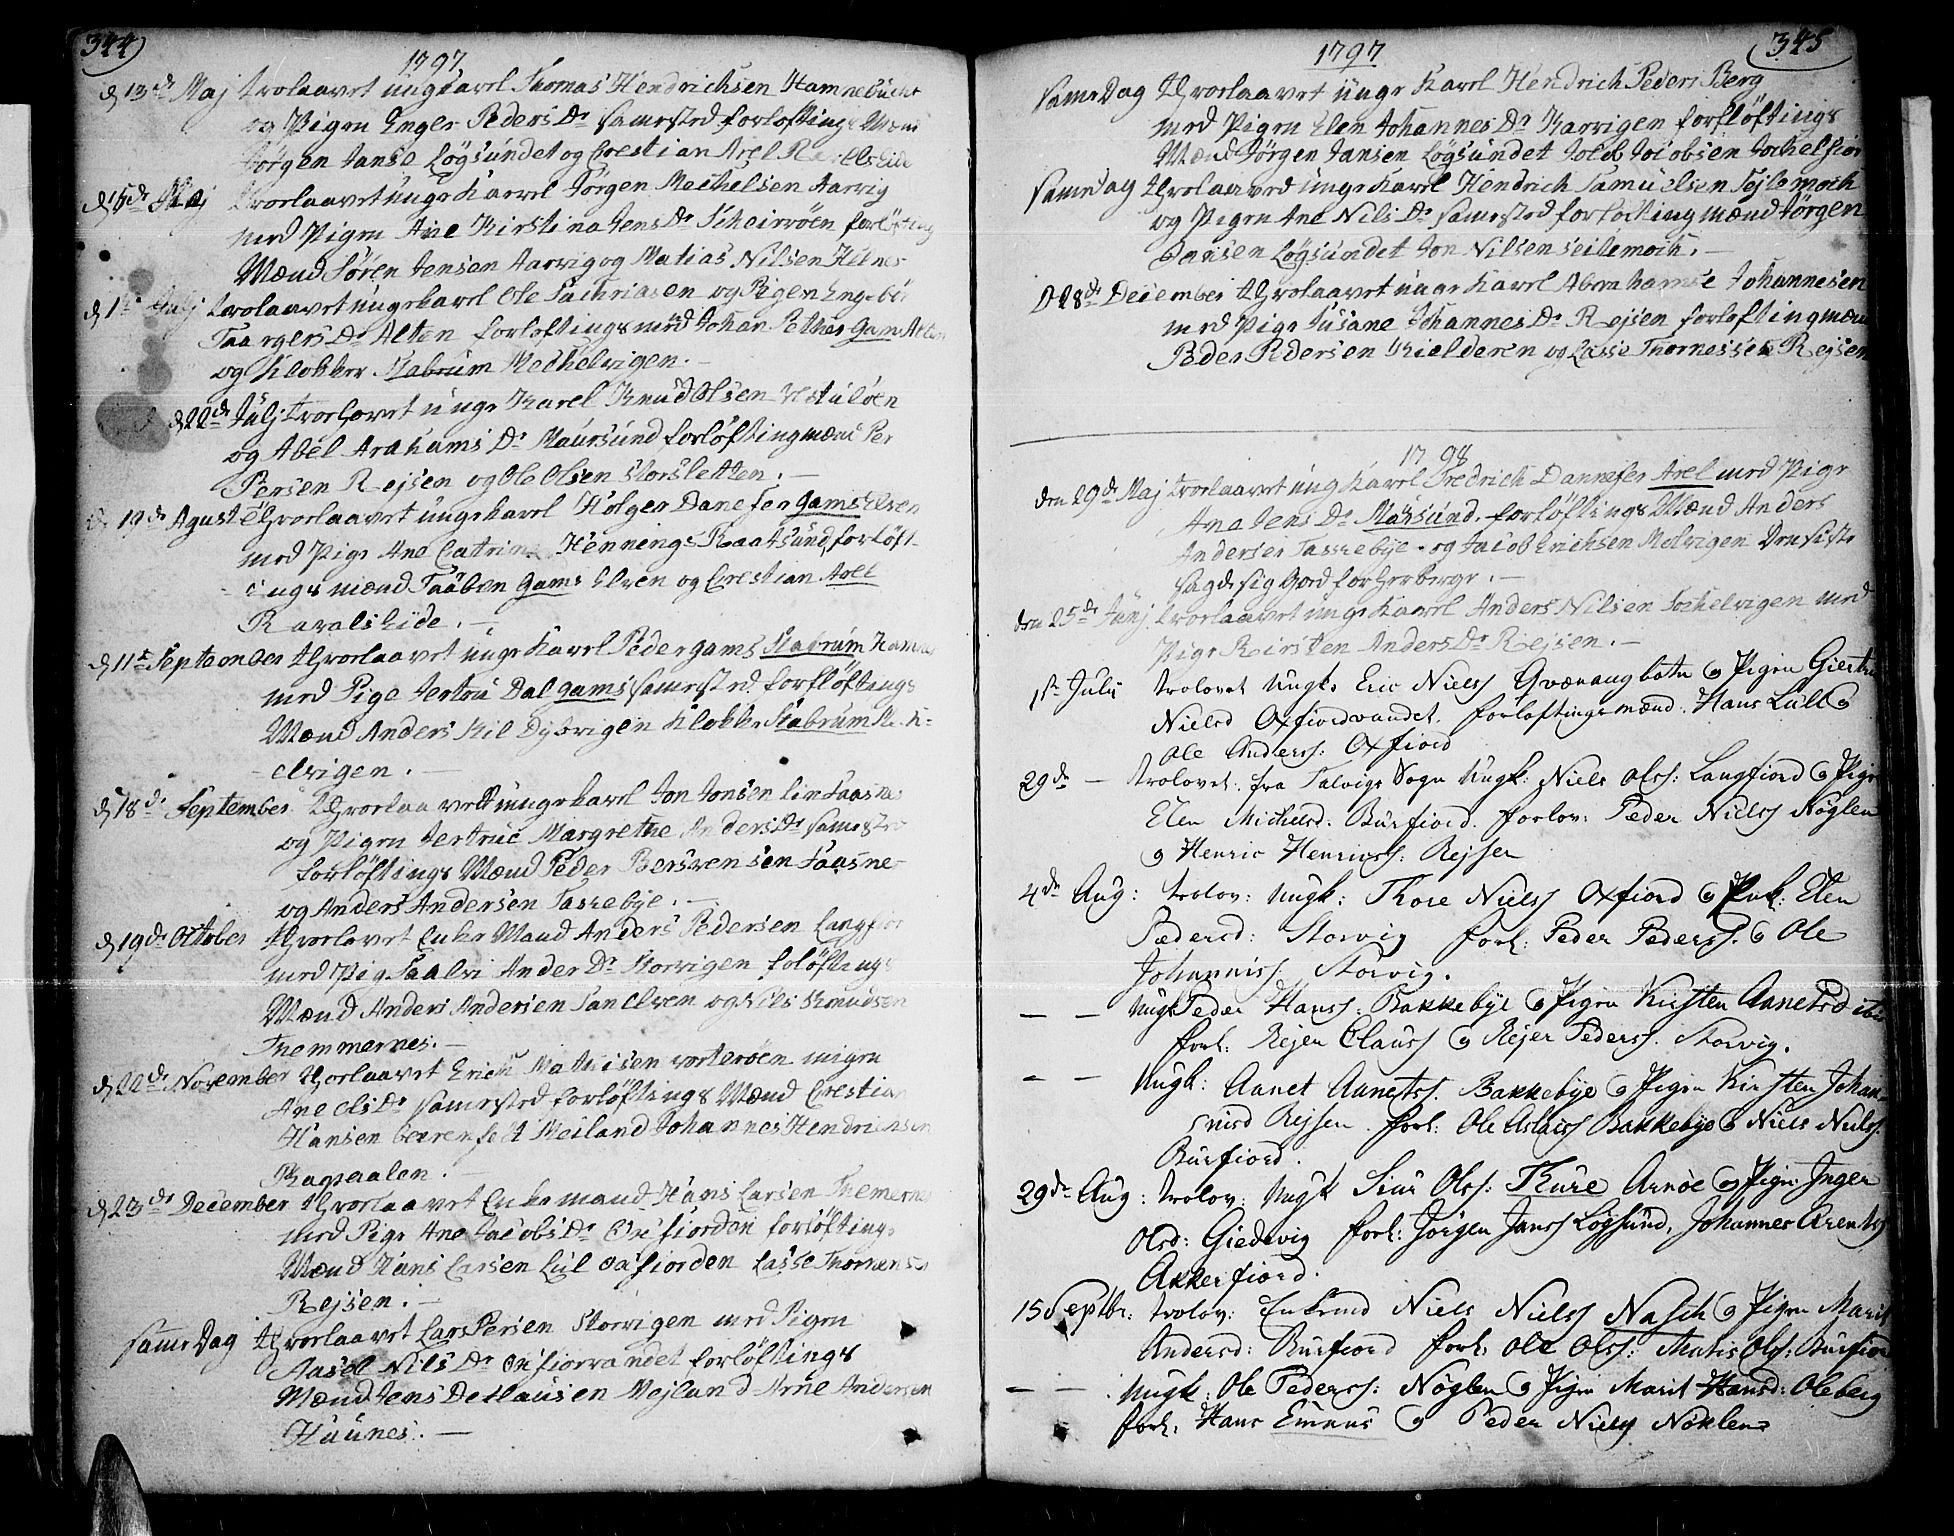 344
1797
d 13de Maj trolaavet ungkarl Thomas Hendrichsen Hamnebucht
og Pigen Inger Peders Dr samested forløftings Mænd
Jørgen Janse Løgsundet og Crestian Axel
d 15de Maj trolaavet unge Karel Jørgen Mechelsen Aarvig
med Pigen Ane Kirstina Jens Dr forløfting
Mænd Søren Jensen Aarvig og Matias Nilsen Helnes
d 1te Julj trolaavet unge karel Ole Sachriasen og Pigen Engebor
Taargers Dr Alten forløftings mænd Johan Pethas gam Alten
og Klokker Stabrum Mechelvigen.
d 22de Julj trolovet unge Karel Knud Olsen
og Abel Arahams Dr Maursund forløftingmænd Per
Persen Rejsen og Ole Olsen Storsletten.
d 19de Agust trolaavet unge karel Holger Danefer gams Elven
med Pige Ane Catrina Hennings Raatsund, forløft-
ings mænd Taaben gams Elven og Crestian Axel
Ravalseide.
d 11te September trolaavet unge Karel Peder gams Stabrum
med Pige Jertru Dal gams samested forløftings
Mænd Anders Kil Dybvigen Klokker Stabrum
elvigen.
d 18de September trolaavet unge karel Jon Jonsen
og Pigen Jertrue Margrethe Anders Dr samested
forløftings Mænd Peder Bersvensen Taasne
og Anders Andersen Taskebye.
d 19de October trolovet Enke Mand Anders Pedersen Langfior
med Pig Saalvi Ander Dr Storvigen foløftings
Mænd Anders Andersen og Nils Knudsen
Tremmernes.
d 22de November trolaavet Erich Mathisen vorterøen
Ane Dr samested forløftings Mænd Crestian
Hansen Meiland Johannes Hendricksen
d 23de December trolaavet Enkemand Hans Larsen
med Pige Ane Jacobs Dr Oxfiorden forløftings
Mænd Hans Larsen Lul oxfiorden Lasse Thomensen
Rejsen.
same Dag trolaavet Lars Persen Storvigen med Pigen
Aasel Nils Dr forløftings
Mænd Jens Detlausen Mejland Arne Andersen
Haunes.
1797
345
same Dag trolaavet unge Karel Hendrich Peders Berg
med Pigen Elen Johannes Dr Karvigen forfløftings
Mænd Jørgen Jansen Løgsundet Jocobsen
same Dag trolaaved unge Karel Hendrich Samuelsen
og Pigen Ane Nils Dr samested forløftingmænd Jørgen
Jansen Løgsundet Jon Nilsen seilemoch.
D 28de December trolaavet unge Karel Abrahamse Johannesen
med Pige Susane Johannes Dr Rejsen forløftingmænd
Peder Pedersen Kielderen og Lasse Thomessen Rejsen
1798
den 29de Maj trolaavet ung Karel Fredrich Dannefer Axel med Pige
Ana Jens Dr Maursund. forløftings Mænd Anders
Andersen Taskebye. og Jacob Erichsen Molvigen Den sidste
sagde sig Goed for Herberge.
den 25de Junj trolaavet unge Karel Anders Nilsen Sochelvigen med
Pige Kirsten Anders Dr Rejsen.
1ste Julij trolovet Ungk. Eric Niels Qvænangbotn og Pigen Giertru
Nielsd Oxfiordvandet. forløftings mænd. Hans Lull og
Ole Anderss: Oxfiord
29de — trolovet: fra Talvigs Sogn Ungk: Niels Ols: Langfiord og Pigen
Elen Michelsd: Burfiord. forlov: Peder Nielss Nøglen
og Henric Henricss: Rejsen
4de Aug: trolov: Ungk: Thore Nielss Oxfiord og Elen
Pedersd: Storvig forl: Peder Pederss. og Ole
Johanniss: Storvig.
— — Ungk Peder Hanss: Bakkebye og Pigen Kirsten Aanetsd ibid
forl: Rejer Clauss og Rejer Pederss. Storvig.
— — Ungk: Aanet Aanetss. Bakkebye og Pigen Kirsten Johan-
nisd Rejsen. forl: Ole Aslacss Bakkebye og Niels Nielss:
Burfiord.
29de Aug: trolov: Ungk Siur Olss: Thure Arnøe og Pigen Inger
Olsd: Giedvig forl: Jørgen Janss Løgsund, Johannes Arentss
Akkerfiord.
15 Septbr: trolov: Enkemd Niels Nielss Nasch og Pigen Marit
Andersd: Burfiord forl: Ole Ols: Matis Ols: Burfiord
— — Ungk: Ole Pederss: Nøglen og Pigen Marit Hansd: Oleberg
forl: Hans Emaus og Peder Nielss Nøklen